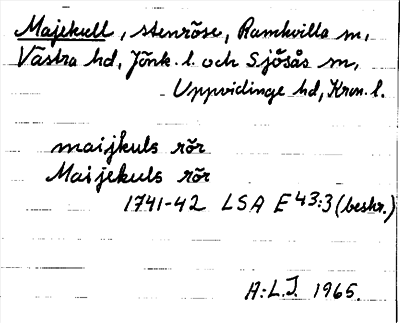 Majekull, stenröse, Ramkvilla sn,
Västra hd, Jönk. l. och Sjösås sn,
Uppvidinge hd, Kron. l.
maijkuls rör
Maijekuls rör
1741-42 LSA E 43:3 (beskr.)
A:L.J. 1965.